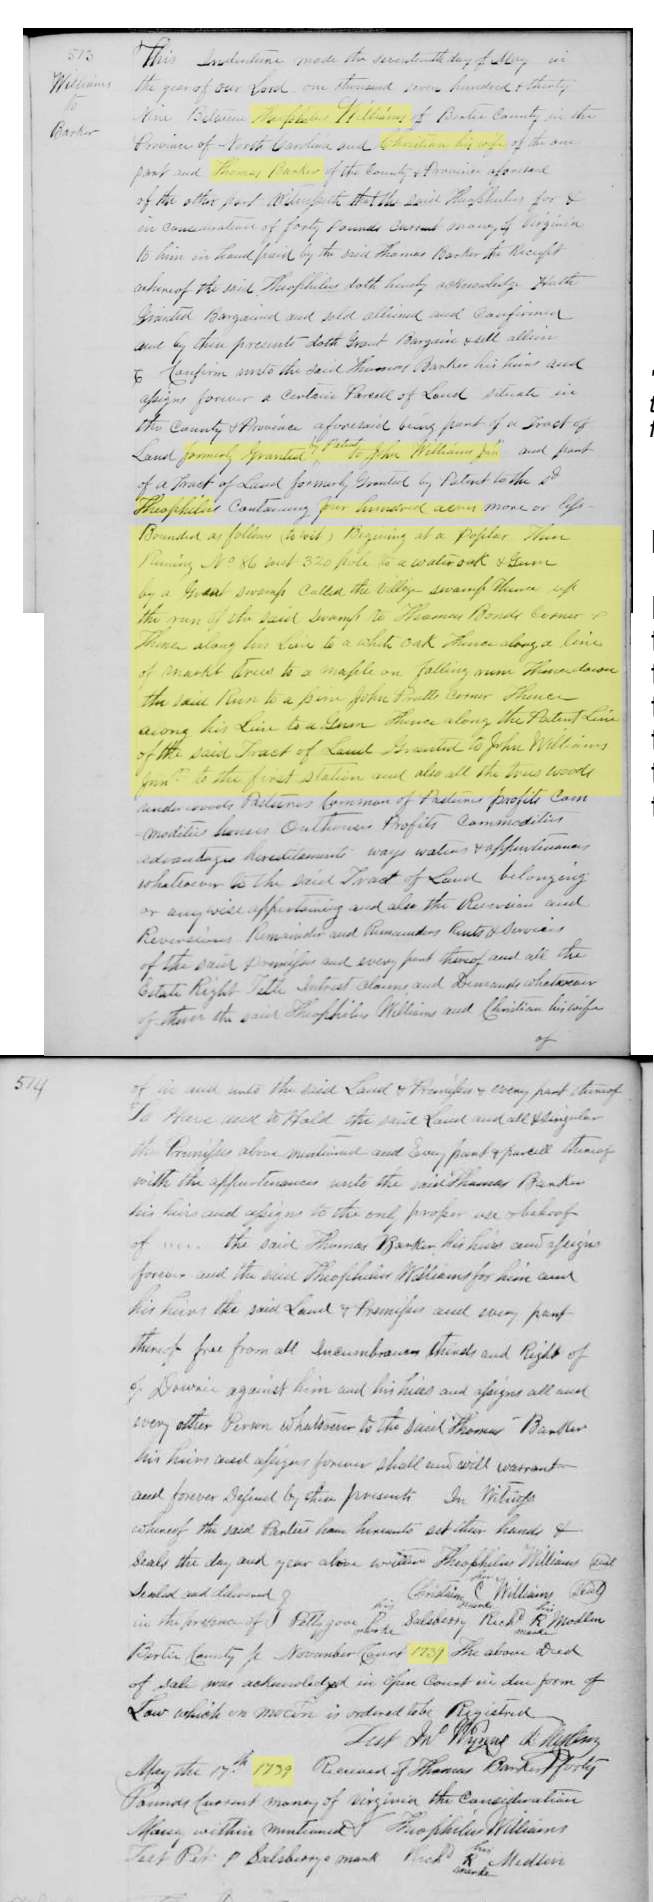 513
Williams
to
Barker
This Indenture made the seventeenth day of May in
the year of our Lord one thousand seven hundred & thirty
Nine Between Theophilus Williams of Bertie County in the
Province of North Carolina and Christian his wife of the one
part and Thomas Barker of the County & Province aforesaid
of the other part Witnesseth that the said Theophilus for &
in consideration of forty Pounds Current money of Virginia
to him in hand paid by the said Thomas Barker the Receipt
whereof the said Theophilus doth hereby acknowledge Hath
Granted Bargained and sold aliened and Confirmed
and by these presents doth Grant Bargain & sell alien
& Confirm unto the said Thomas Barker his heirs and
assigns forever a Certain Parcel of Land situate in
the County & Province aforesaid being part of a Tract of
Land formerly Granted by Patent to John Williams Junr and part
of a Tract of Land formerly Granted by Patent to the sd
Theophilus Containing four hundred acres more or less
Bounded as follows (to wit) Begining at a Poplar Then
Runing No 86 west 320 pole to a water oak & Gum
by a Great swamp Called the Village swamp thence up
the run of the said swamp to Thomas Bonds Corner &
Thence along his Line to a white oak thence along a line
of markt trees to a maple on falling run Thence down
the said Run to a pine John Pratts Corner Thence
along his Line to a Gum thence along the Patent Line
of the said Tract of Land Granted to John Williams
Junr to the first station and also all the trees woods
underwoods Pastures Common of Pastures profits Com
modities houses Outhouses Profits Commodities
advantages hereditements ways waters & appurtenances
whatsoever to the said Tract of Land belonging
or anywise appertaining and also the Reversion and
Reversions Remainder and Remainders Rents & Services
of the said premises and every part thereof and all the
Estate Right Title Interest claims and Demands whatsoever
of them the said Theophilus Williams and Christian his wife
of
514
of in and unto the said Land & Premises & every part thereof
To Have and to Hold the said Land and all & singular
the Premises above mentioned and Every part & parcell thereof
with the appurtenances unto the said Thomas Barker
his heirs and assigns to the only proper use & behoof
of .... the said Thomas Barker his heirs and assigns
forever and the said Theophilus Williams for him and
his heirs the said Land & Premises and every part
thereof free from all Incumbrances thirds and Right of
of Dowrie against him and his heirs and assigns all and
every other Person whatsoever to the said Thomas Barker
his heirs and assigns forever shall and will warrant
and forever Defend by these presents In Witness
whereof the said Parties have hereunto set their hands &
Seals the day and year above written Theophilus Williams (Seal
Sealed and delivered Christian her C marke Williams (Seal)
in the presence of Pettygove his P marke Salsberry Richd his R marke Modlin
Bertie County Sc November Court 1739 The above Deed
of sale was acknowledged in Open Court in due form of
Law which on motion is ordered to be Registred
Test Jno Wynns
May the 17th 1739 Received of Thomas Barker forty
Pounds Current money of virginia the Consideration
Money within mentioned Theophilus Williams
Test Pet P Salsberrys mark Richd his R marke Medlin